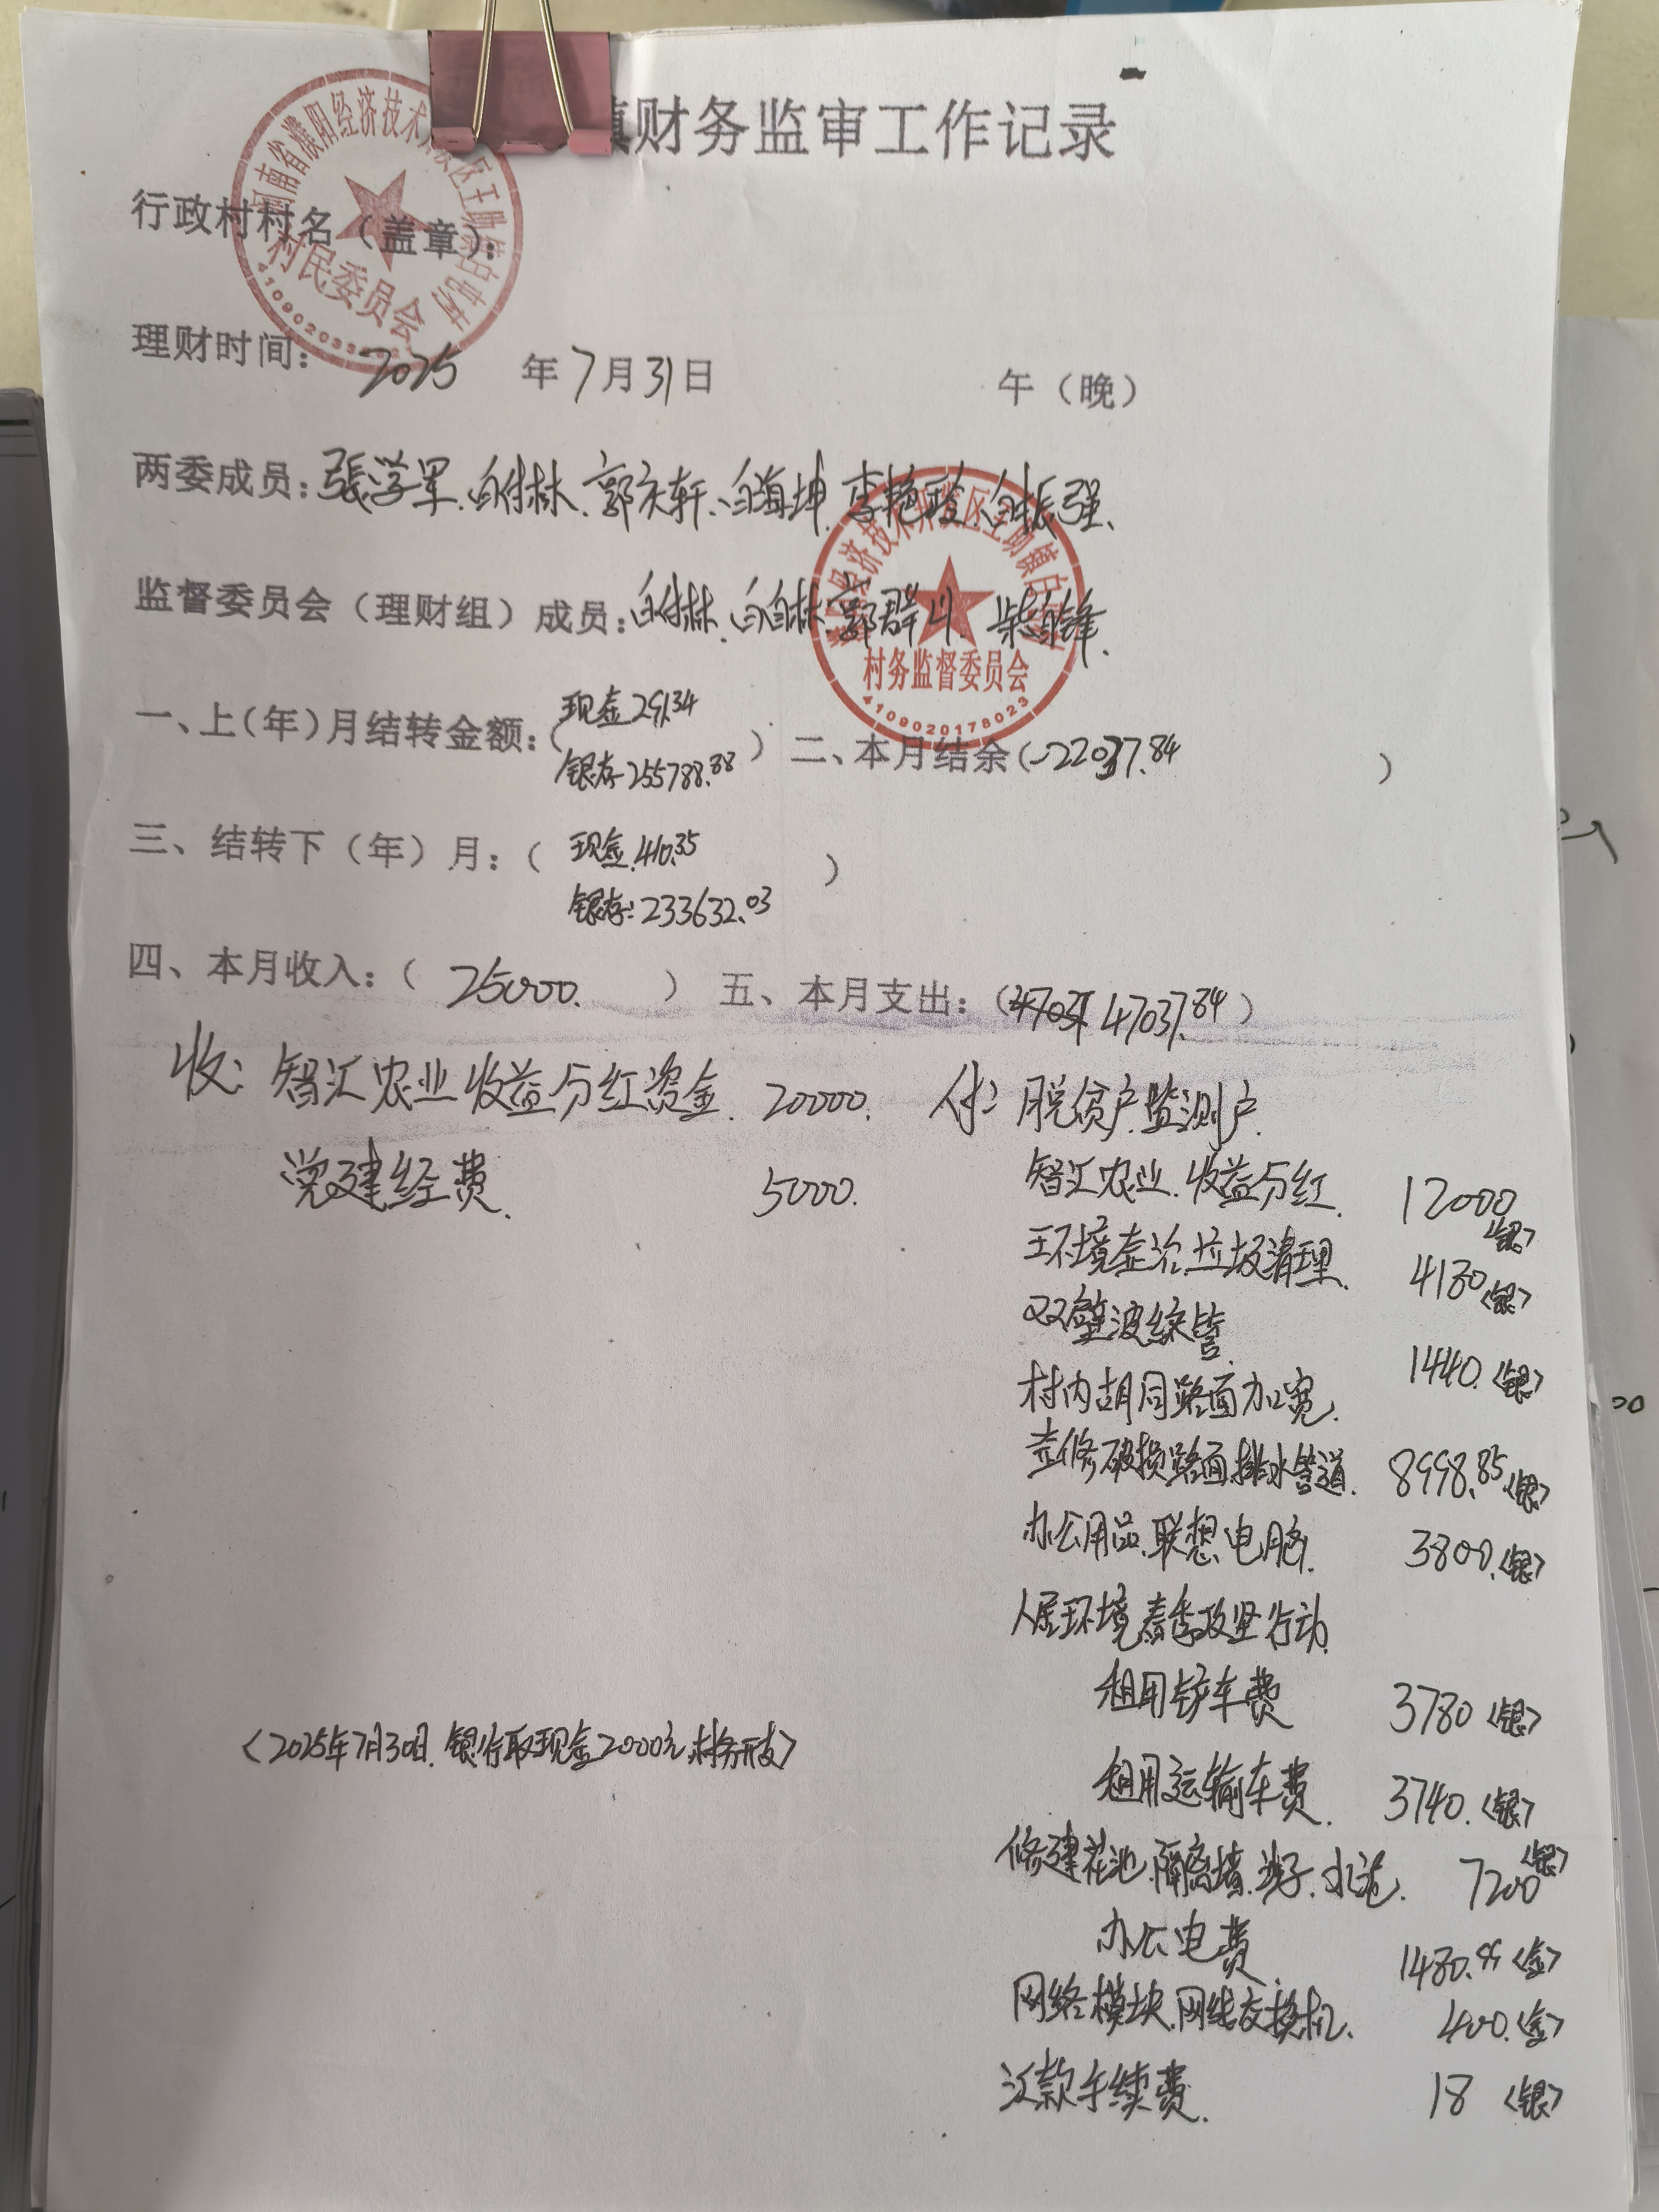 镇财务监审工作记录
河南省濮阳经济技术开发区王助镇白邑村
村民委员会
行政村村名（盖章）：
理财时间： 2025 年 7 月 31 日 午（晚）
两委成员：張学军、白付林、郭永轩、白海坤、李艳玲、白振强、
监督委员会（理财组）成员：白付林、白自林、郭群川、柴自锋、
经济技术开发区王助镇白
村务监督委员会
4109020178023
一、上（年）月结转金额：（现金291.34
银存255788.88） 二、本月结余（-22037.84 ）
三、结转下（年）月：（ 现金.410.35
银存：233632.03 ）
四、本月收入：（ 25000. ） 五、本月支出：（47037.84）
收：智汇农业收益分红资金. 20000. 付：脱贫户.监测户.
党建经费. 5000.
智汇农业.收益分红. 12000〈银〉
环境整治.垃圾清理. 4180〈银〉
双壁波纹管. 1440.〈银〉
村内胡同路面加宽.
整修破损路面.排水管道. 8998.85.〈银〉
办公用品.联想电脑. 3800.〈银〉
人居环境春季攻坚行动.
租用铲车费 3780〈银〉
〈2025年7月30日.银行取现金2000元.村务开支〉
租用运输车费. 3740.〈银〉
修建花池.隔离墙.沙子.水泥. 7200〈银〉
办公电费. 1480.99〈金〉
网络模块.网线交换机. 400.〈金〉
汇款手续费. 18〈银〉